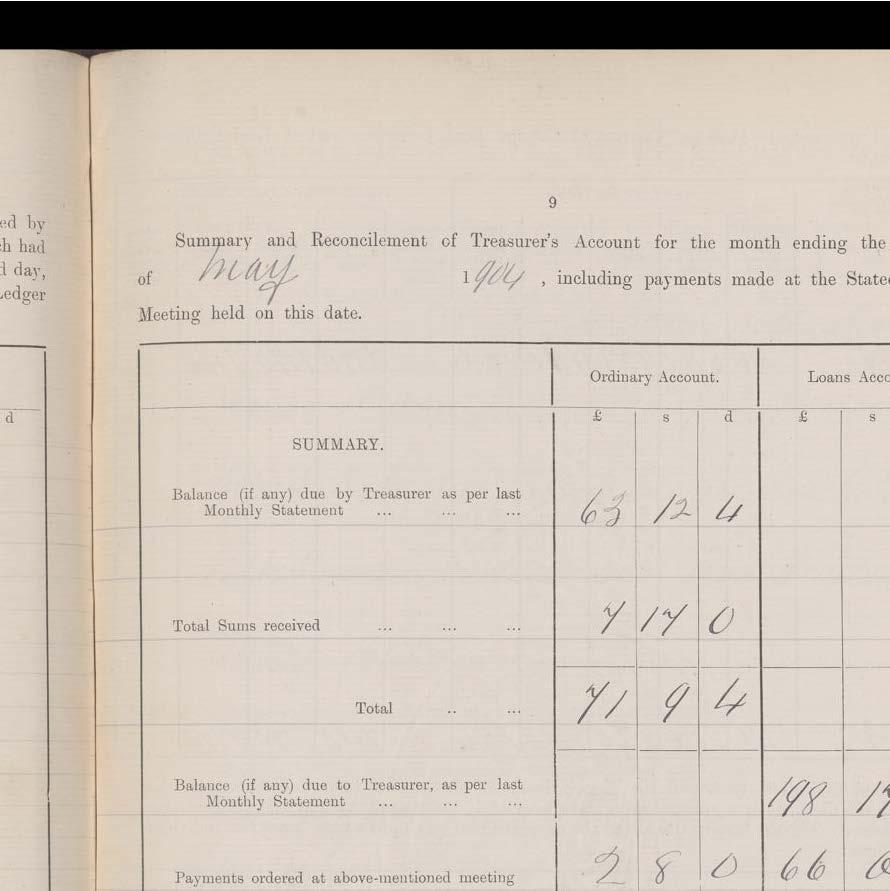 ed by
h had
d day,
Ledger
d
9
Summary and Reconcilement of Treasurer's Account for the month ending the
of may 1904, including payments made at the State
Meeting held on this date.
Ordinary Account. Loans Acco
£ s d £ s
SUMMARY.
Balance (if any) due by Treasurer as per last
Monthly Statement ... ... ... 63 12 4
Total Sums received ... ... ... 7 17 0
Total .. ... 71 9 4
Balance (if any) due to Treasurer, as per last
Monthly Statement ... ... ... 198 17
Payments ordered at above-mentioned meeting 2 8 0 66 0